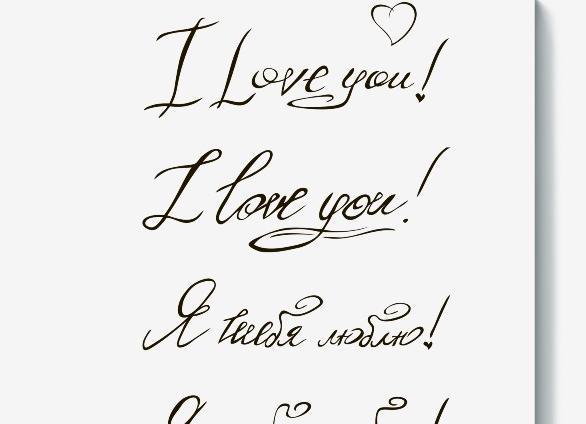 I Love you!
I love you!
Я тебя люблю!